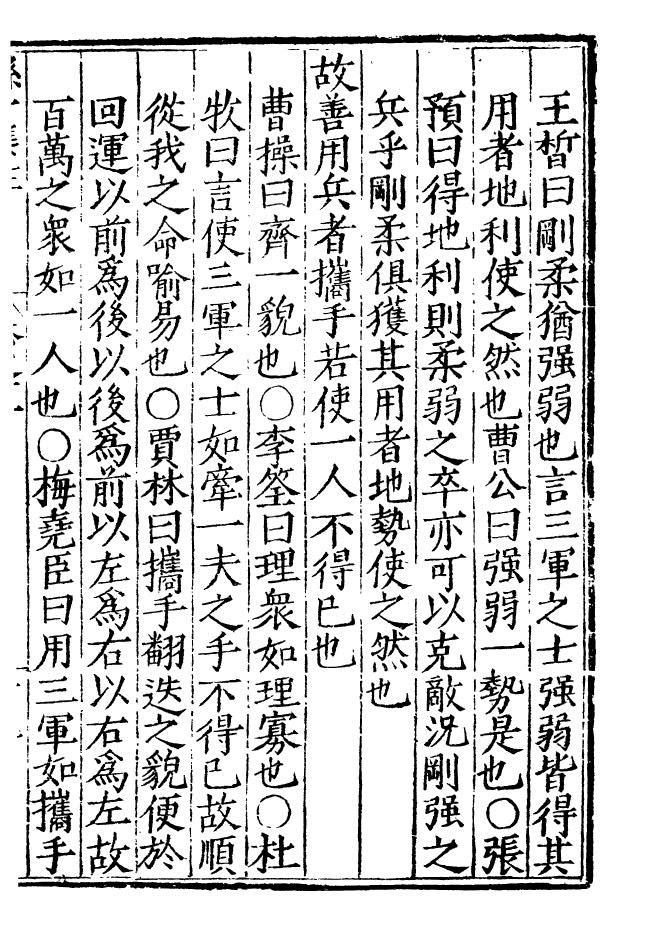 王晳曰剛柔猶强弱也言三軍之士强弱皆得其
用者地利使之然也曹公曰强弱一勢是也○張
預曰得地利則柔弱之卒亦可以克敵況剛强之
兵乎剛柔俱獲其用者地勢使之然也
故善用兵者攜手若使一人不得已也
曹操曰齊一貌也○李筌曰理衆如理寡也○杜
牧曰言使三軍之士如牽一夫之手不得已故順
從我之命喻易也○賈林曰攜手翻迭之貌便於
回運以前爲後以後爲前以左爲右以右爲左故
百萬之衆如一人也○梅堯臣曰用三軍如攜手